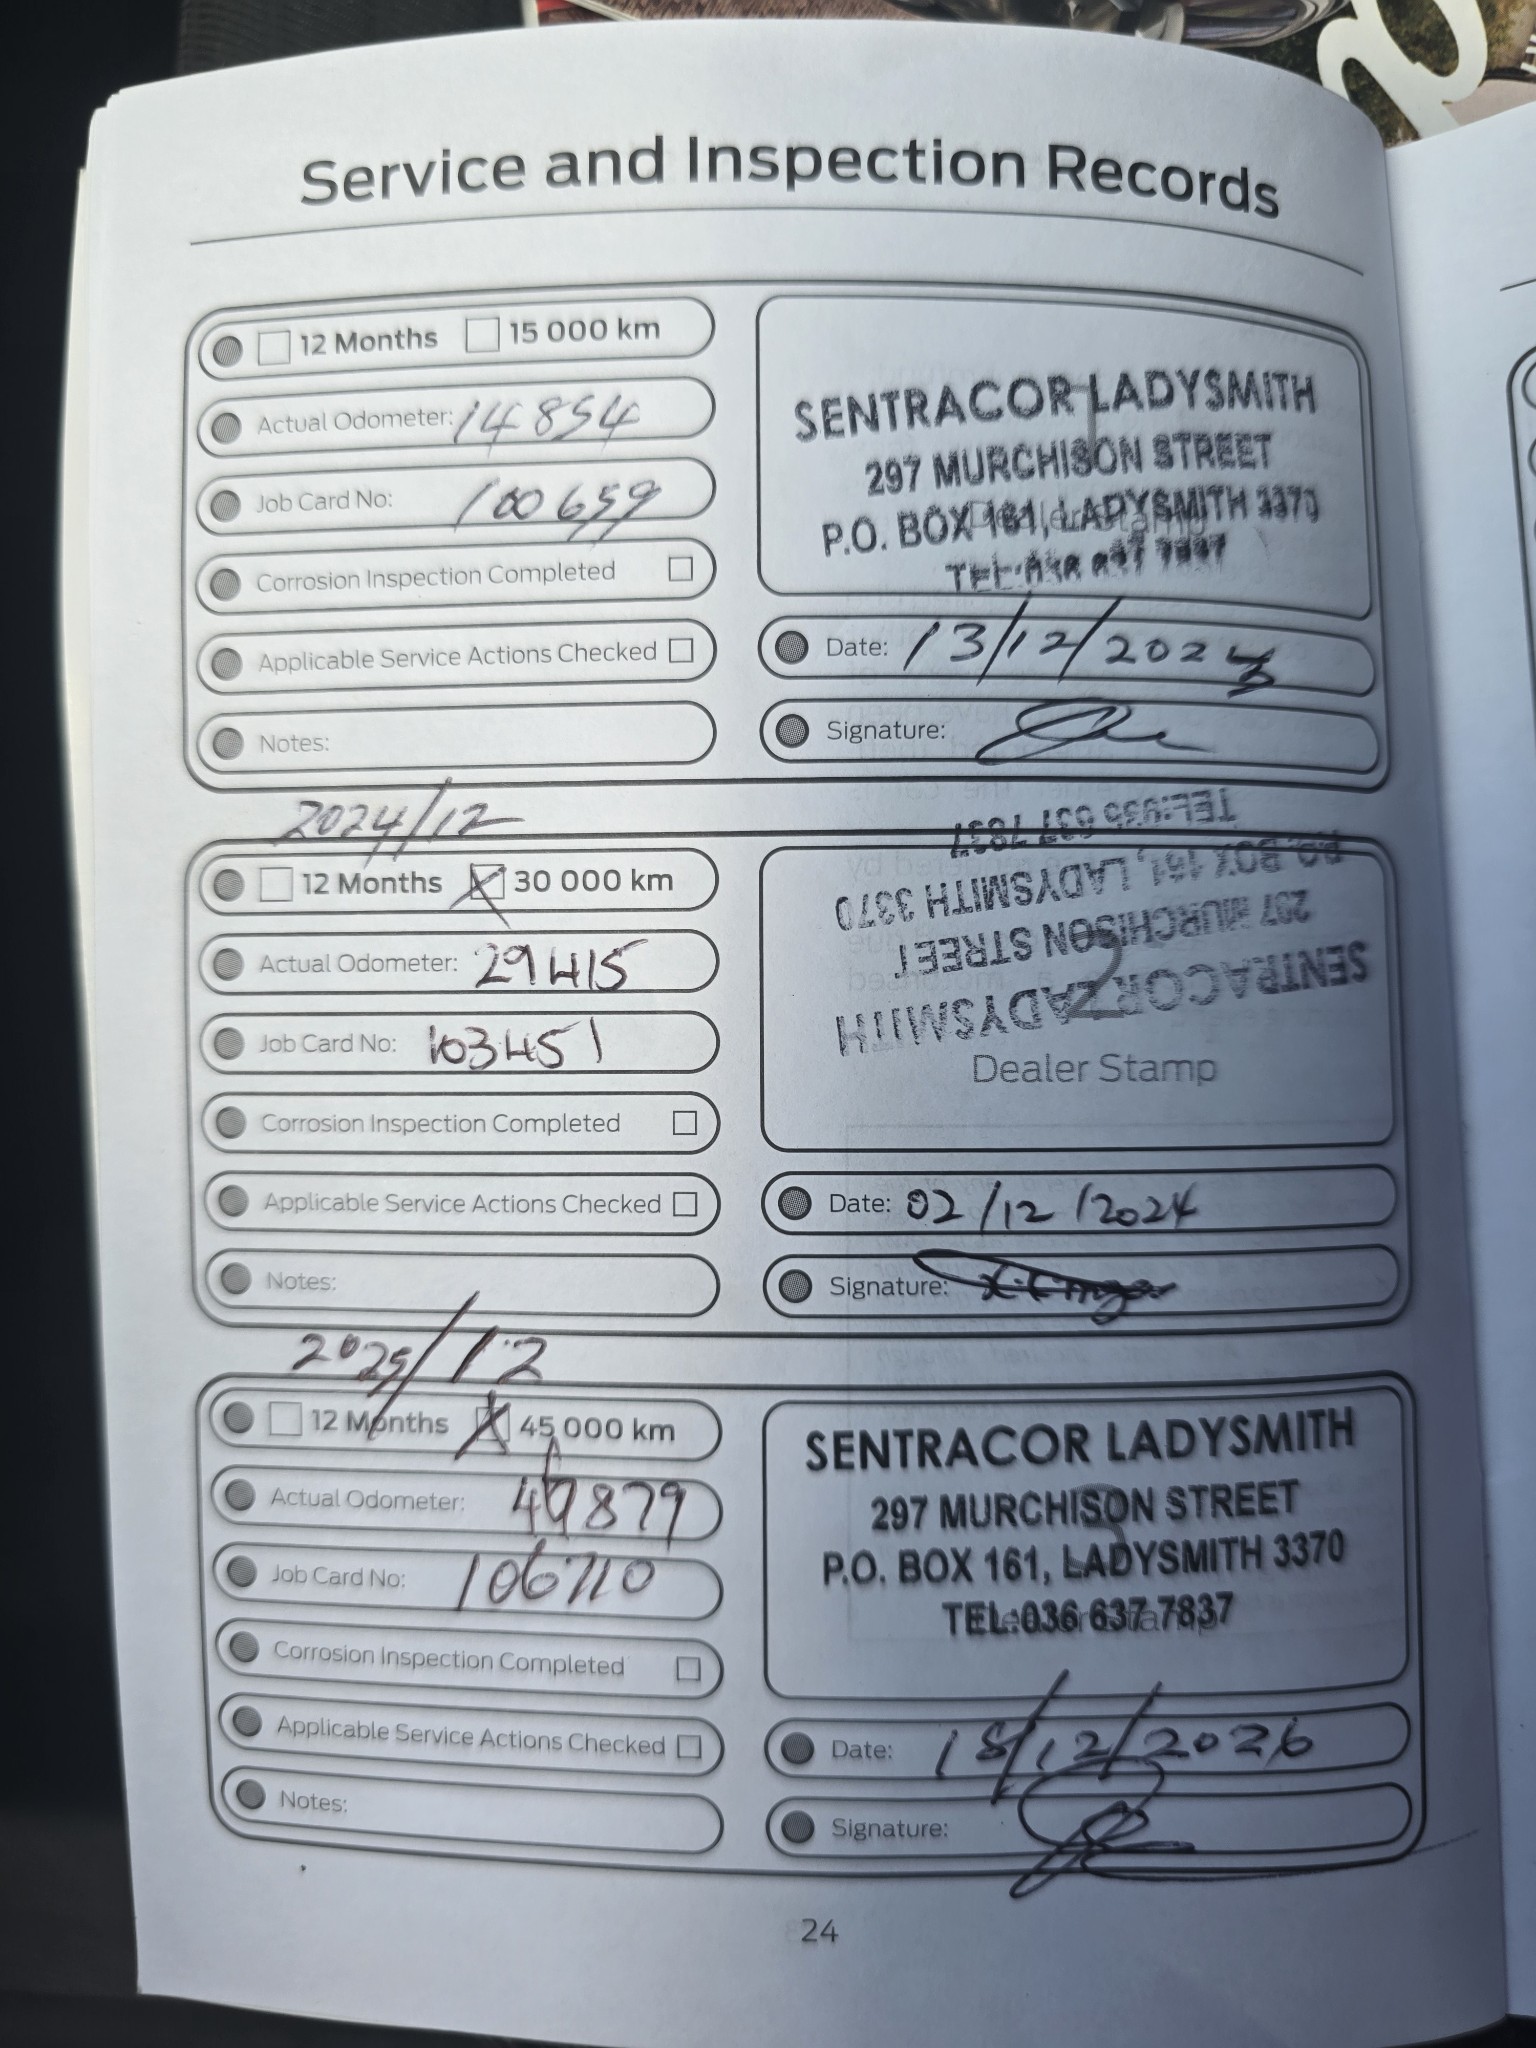 Service and Inspection Records
12 Months 15 000 km
Actual Odometer: 14854
Job Card No: 100659
Corrosion Inspection Completed
Applicable Service Actions Checked
Notes:
SENTRACOR LADYSMITH
297 MURCHISON STREET
P.O. BOX 161, LADYSMITH 3370
TEL:
Date: 13/12/202
Signature:
2024/12
12 Months 30 000 km
Actual Odometer: 29415
Job Card No: 103451
Corrosion Inspection Completed
Applicable Service Actions Checked
Notes:
SENTRACOR LADYSMITH
297 MURCHISON STREET
P.O. BOX 161, LADYSMITH 3370
TEL:036 637 7837
2
Dealer Stamp
Date: 02/12/2024
Signature:
2025/12
12 Months 45 000 km
Actual Odometer: 879
Job Card No: 106710
Corrosion Inspection Completed
Applicable Service Actions Checked
Notes:
SENTRACOR LADYSMITH
297 MURCHISON STREET
P.O. BOX 161, LADYSMITH 3370
TEL:036 637 7837
Date: 18/12/2026
Signature:
24